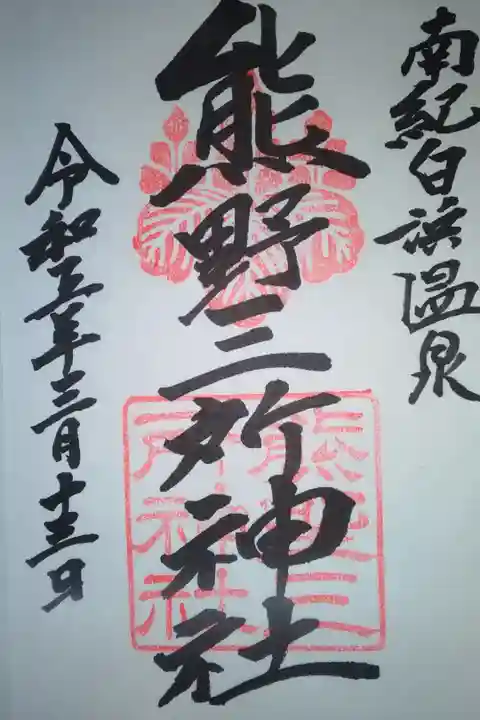 南紀白浜温泉
熊野三所神社
令和五年三月十三日
熊野三
所神社